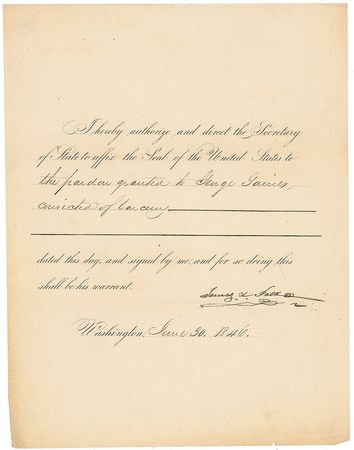 I hereby authorize and direct the Secretary
of State to affix the Seal of the United States to
the pardon granted to George Gaines,
convicted of larceny
dated this day, and signed by me: and for so doing this
shall be his warrant.
James K. Polk
Washington, June 30, 1846.